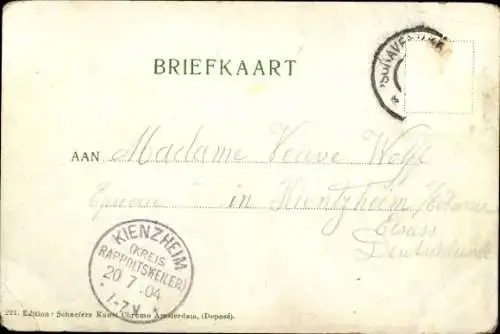 'SGRAVENHAGE
BRIEFKAART
AAN Madame Veuve Wolff
in Kientzheim
Elsass
Deutschland
KIENZHEIM
(KREIS
RAPPOLTSWEILER)
20 7 04
1-2 V
221. Edition: Schaefers Kunst Chromo Amsterdam, (Deposé).